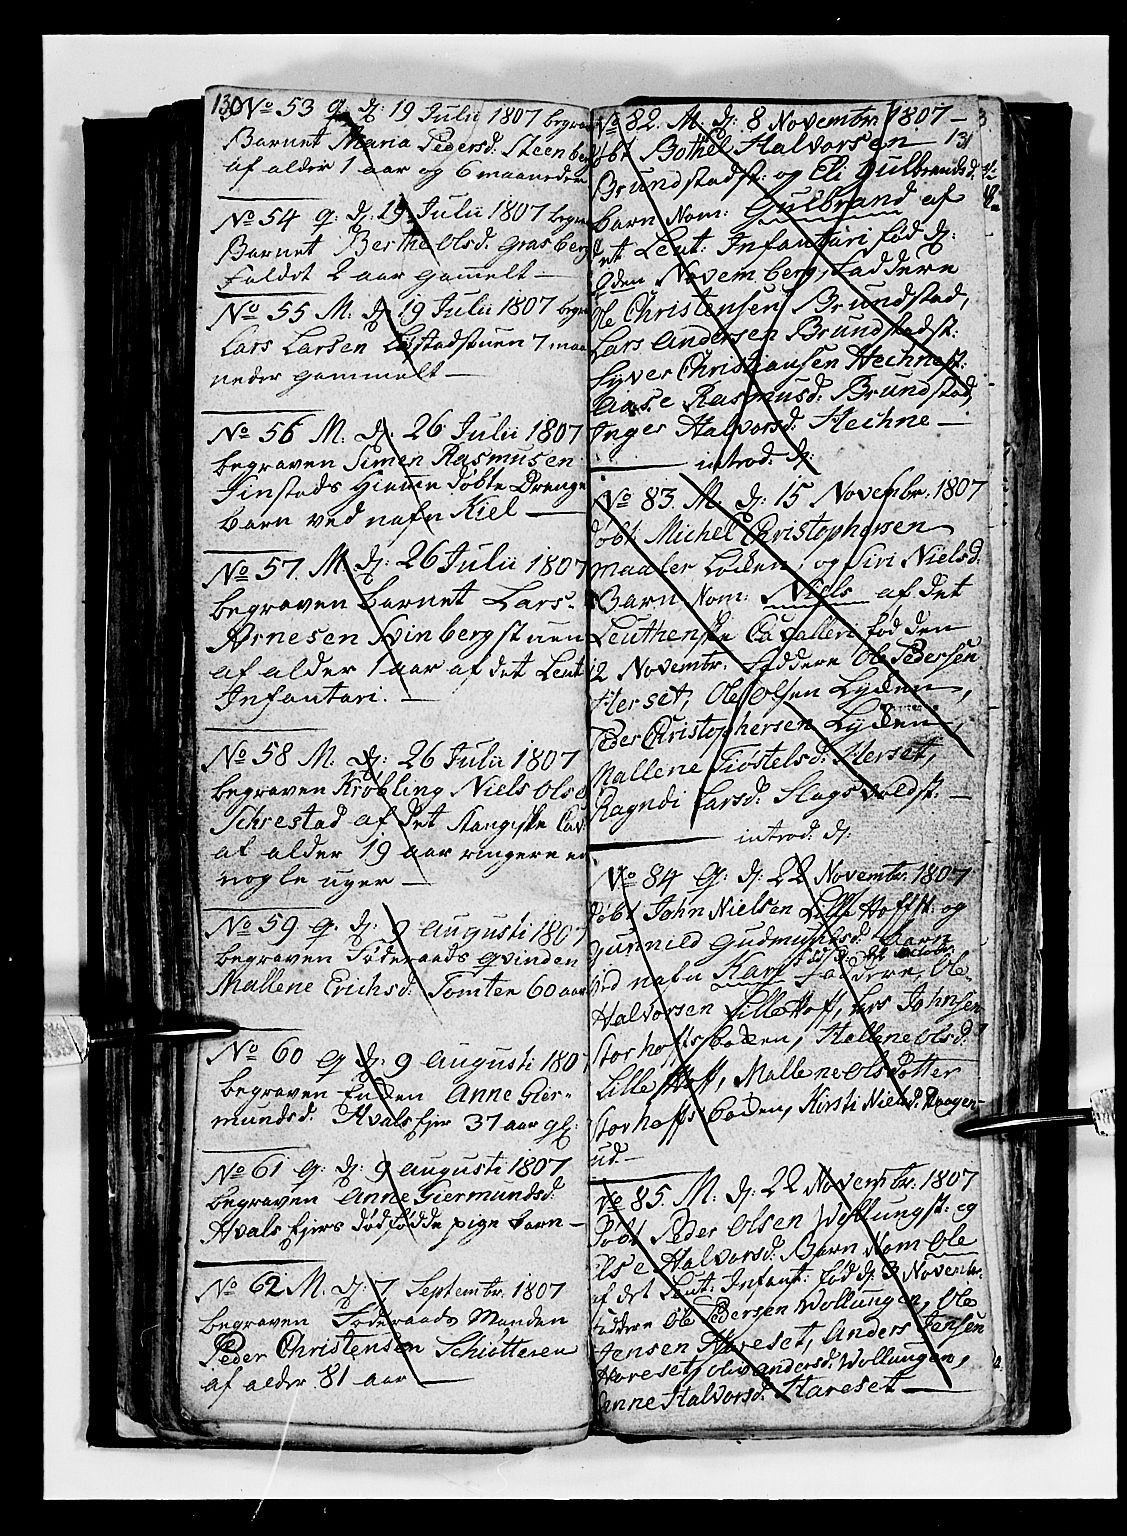 130
No 53 G. D: 19 Julii 1807 begra
Barnet Maria Pedersd: Steenbe
af alder 1 aar og 6 maaneder
No 54 G. D: 19 Julii 1807 begra
Barnet Berthe Olsd: Grasberg
faldet 2 aar gammelt —
No 55 M. D: 19 Julii 1807 begra
Lars Larsen 7 maa
neder gammelt —
No 56 M. D: 26 Julii 1807
begraven Simen Rasmusen
Finstads hiemme døbte Drenge
barn ved nafn Kiel —
No 57. M. D: 26 Julii 1807
begraven barnet Lars
Arnesen Svinbergstuen
af alder 1 aar af det Leut
Infantari. —
No 58 M. D: 26 Julii 1807
begraven Krøbling Niels Olse
Schrestad af det Stangiske Cav:
af alder 19 aar ringere en
nogle uger —
No 59 G. D: 9 Augusti 1807
begraven Føderaads Qvinden
Mallene Erichsd: Tomter 60 aar
No 60 G D: 9 Augusti 1807
begraven Enken Anne Gier-
mundsd: Hvals Ejer 37 aar gl:
No 61 G: D: 9 Augusti 1807
begraven Anne Giermundsd:
Hvals Ejers dødfødde pige barn —
No 62 M. D: 7 Septembr. 1807
begraven Føderaads Manden
Peder Christensen Schiøtteren
af alder 81 aar —
No 82. M. D: 8 Novembr. 1807 —
131
døbt Bothel Halvorsen
Brundstadst: og Eli Gulbrandsd:
barn Nom: Gulbrand af
det Leut: Infantari fød D:
2den November, Faddere
Ole Christensen Brundstad,
Lars Andersen Brundstadst:
Syver Christiansen Hechnest:
Aase Rasmusd: Brundstad,
Inger Halvorsd: Hechne —
introd: D:
No 83. M. D: 15 Novembr. 1807
døbt Michel Christophersen
maaler Løken, og Siri Nielsd:
Barn Nom: Niels af det
Leuthenske Cavalleri fød den
12 Novembr. Faddere Ole Pedersen
Herset, Ole Olsen Lyden,
Peder Christophersen Lyden,
Mallene Tiøstelsd: Herset,
Ragndi Larsd: Slagsvoldst: —
introd: D:
No 84 G: D: 22 Novembr. 1807
døbt John Nielsen Lille Hoffst: og
Gunnild Gudmundsd: barn
ved nafn Kari Faddere, Ole
Halvorsen Lille Hoff, Lars Johnsen
Storhoffsbaken, Hallene Olsd:
Lille Hoff, Mallene Olsdotter
Storhoffsbaken, Kirsti Nielsd: Haagen-
ud —
No 85. M. D: 22 Novembr. 1807
døbt Peder Olsen Wollungst: og
Else Halvorsd: Barn Nom Ole
af det Leut: Infant: fød D: 3 Novembr.
Faddere Ole Pedersen Wollungen, Ole
Jensen Hareset, Anders Jensen
Hareset, Olia Andersd: Wollungen,
Anne Halvorsd: Hareset —